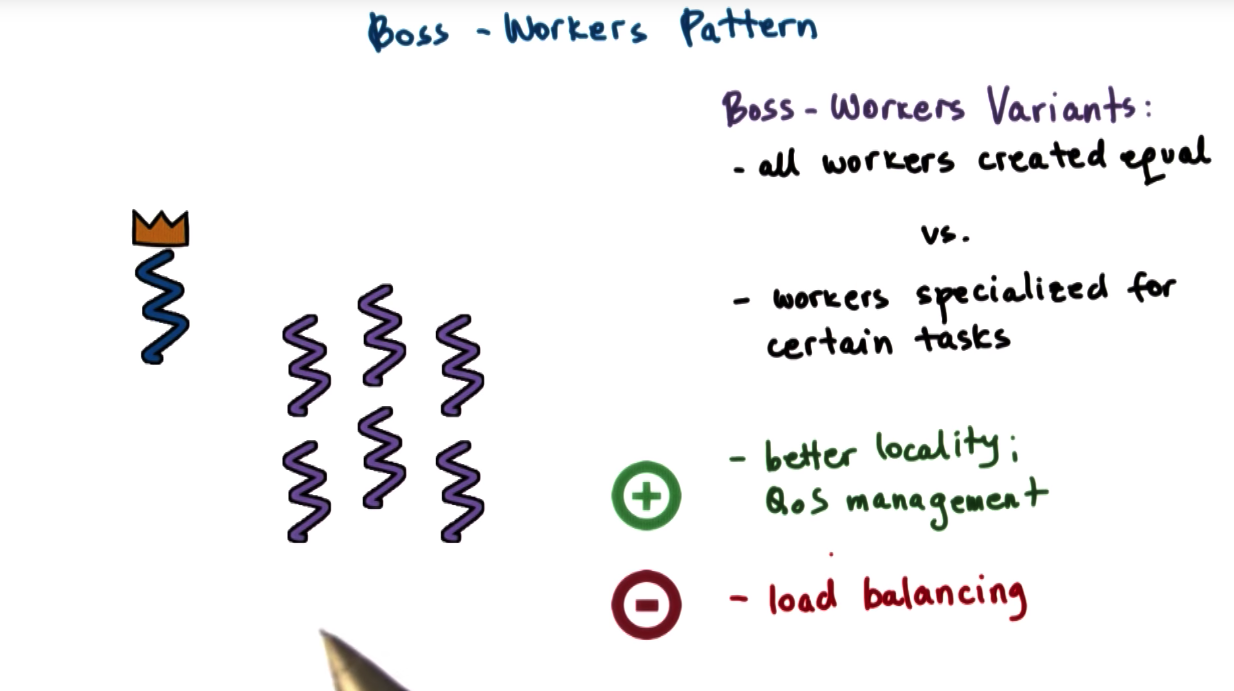 Boss - Workers Pattern
Boss - Workers Variants:
- all workers created equal
vs.
- workers specialized for
certain tasks
+
- better locality;
QoS management
-
- load balancing